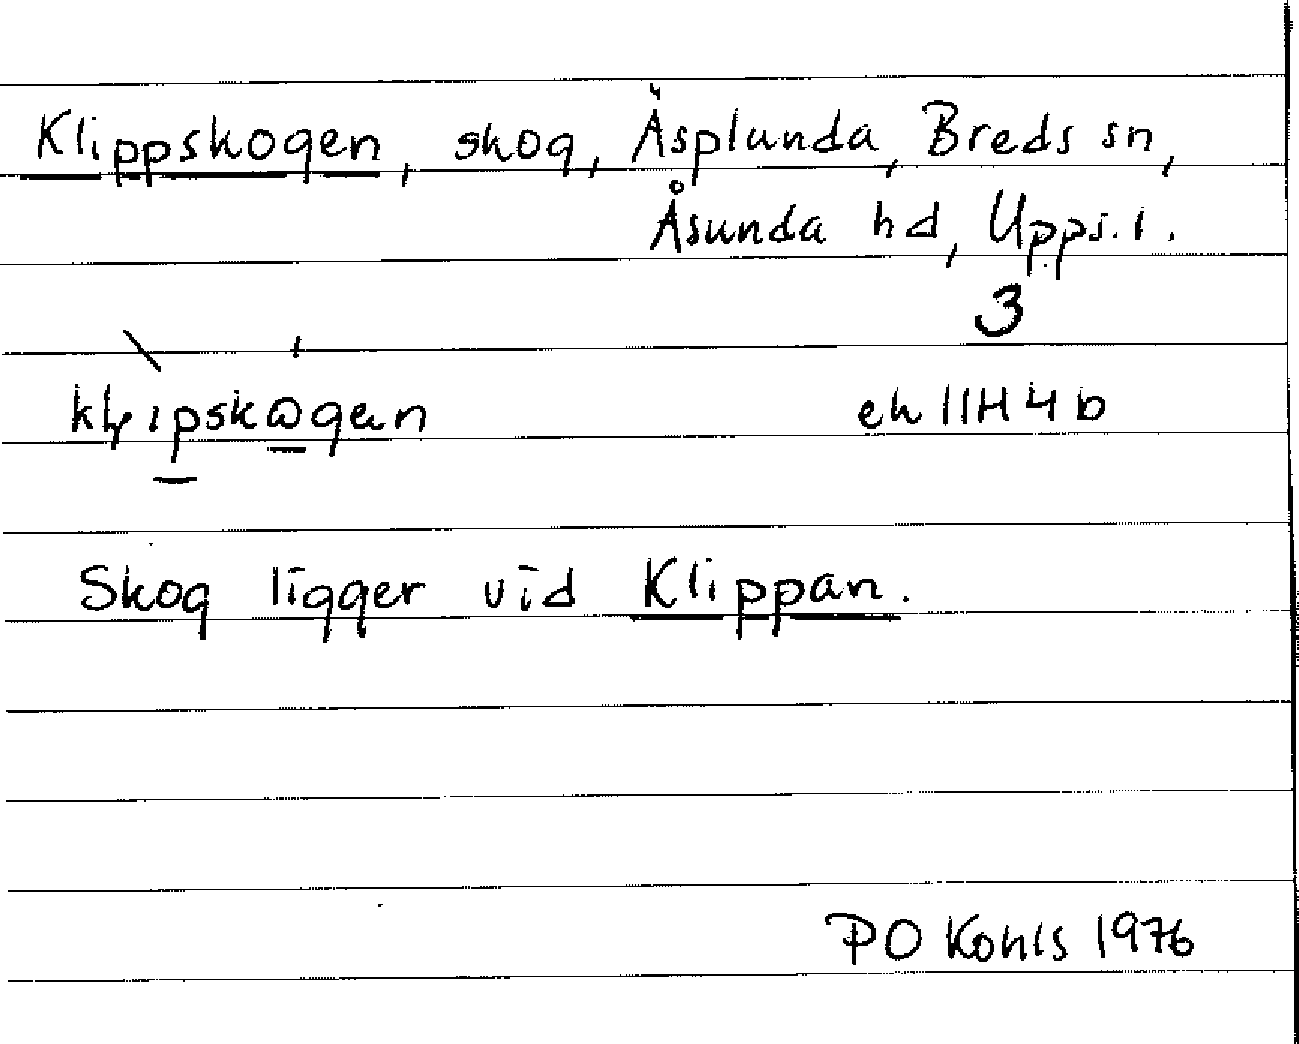 Klippskogen, skog, Äsplunda, Breds sn,
Åsunda hd, Upps. l.
3
ek 11H4b
Skog ligger vid Klippan.
PO Kohls 1976